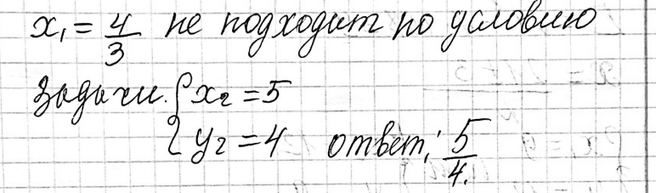 x₁ = 4/3 не подходит по условию
задачи. { x₂ = 5
{ y₂ = 4 ответ: 5/4.